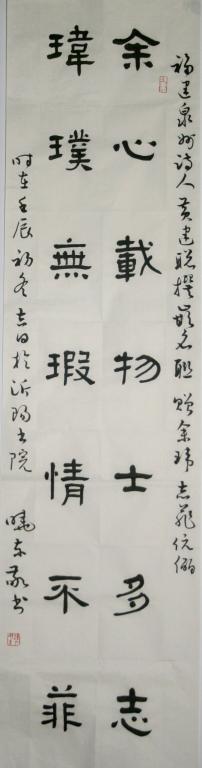 福建泉州诗人黄建聪撰嵌名联赠余玮志菲伉俪
余心載物士多志
瑋璞無瑕情不菲
时在壬辰初冬吉日於书院
曉东敬书